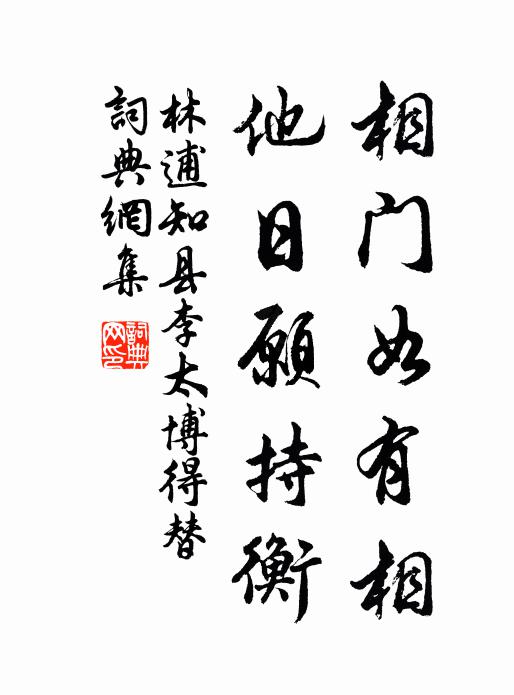 相门如有相
他日願持衡
林逋知县李太博得替
詞典網集
詞典網印